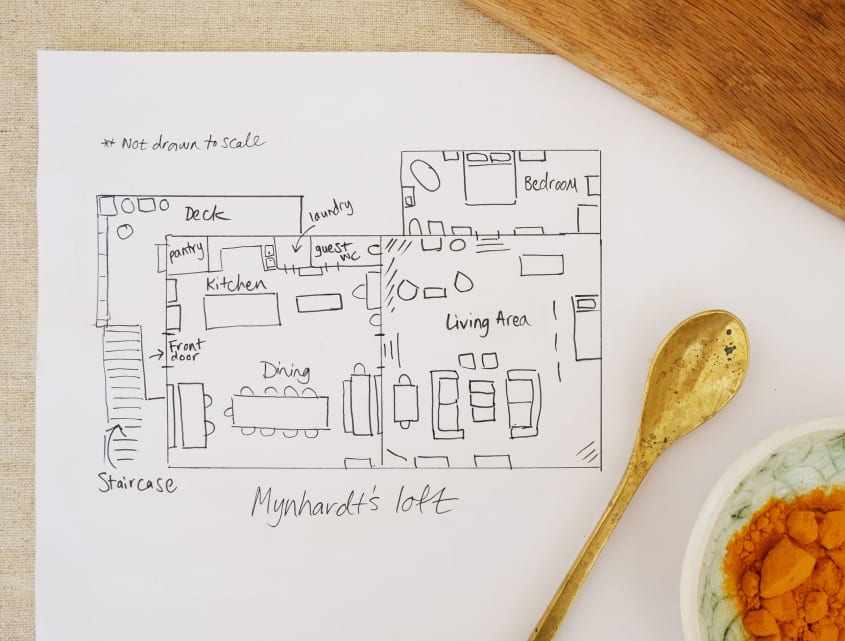 ** Not drawn to scale
Bedroom
Deck
laundry
pantry
guest
WC
Kitchen
Living Area
Front
door
Dining
Staircase
Mynhardt's loft